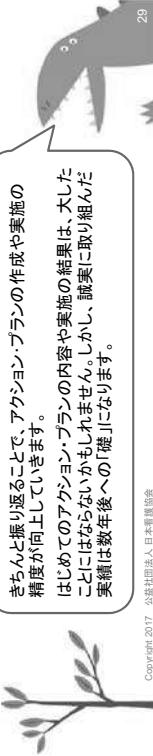 きちんと振り返ることで、アクション・プランの作成や実施の
精度が向上していきます。
はじめてのアクション・プランの内容や実施の結果は、大した
ことにはならないかもしれません。しかし、誠実に取り組んだ
実績は数年後への「礎」になります。
Copyright 2017　公益社団法人 日本看護協会
29